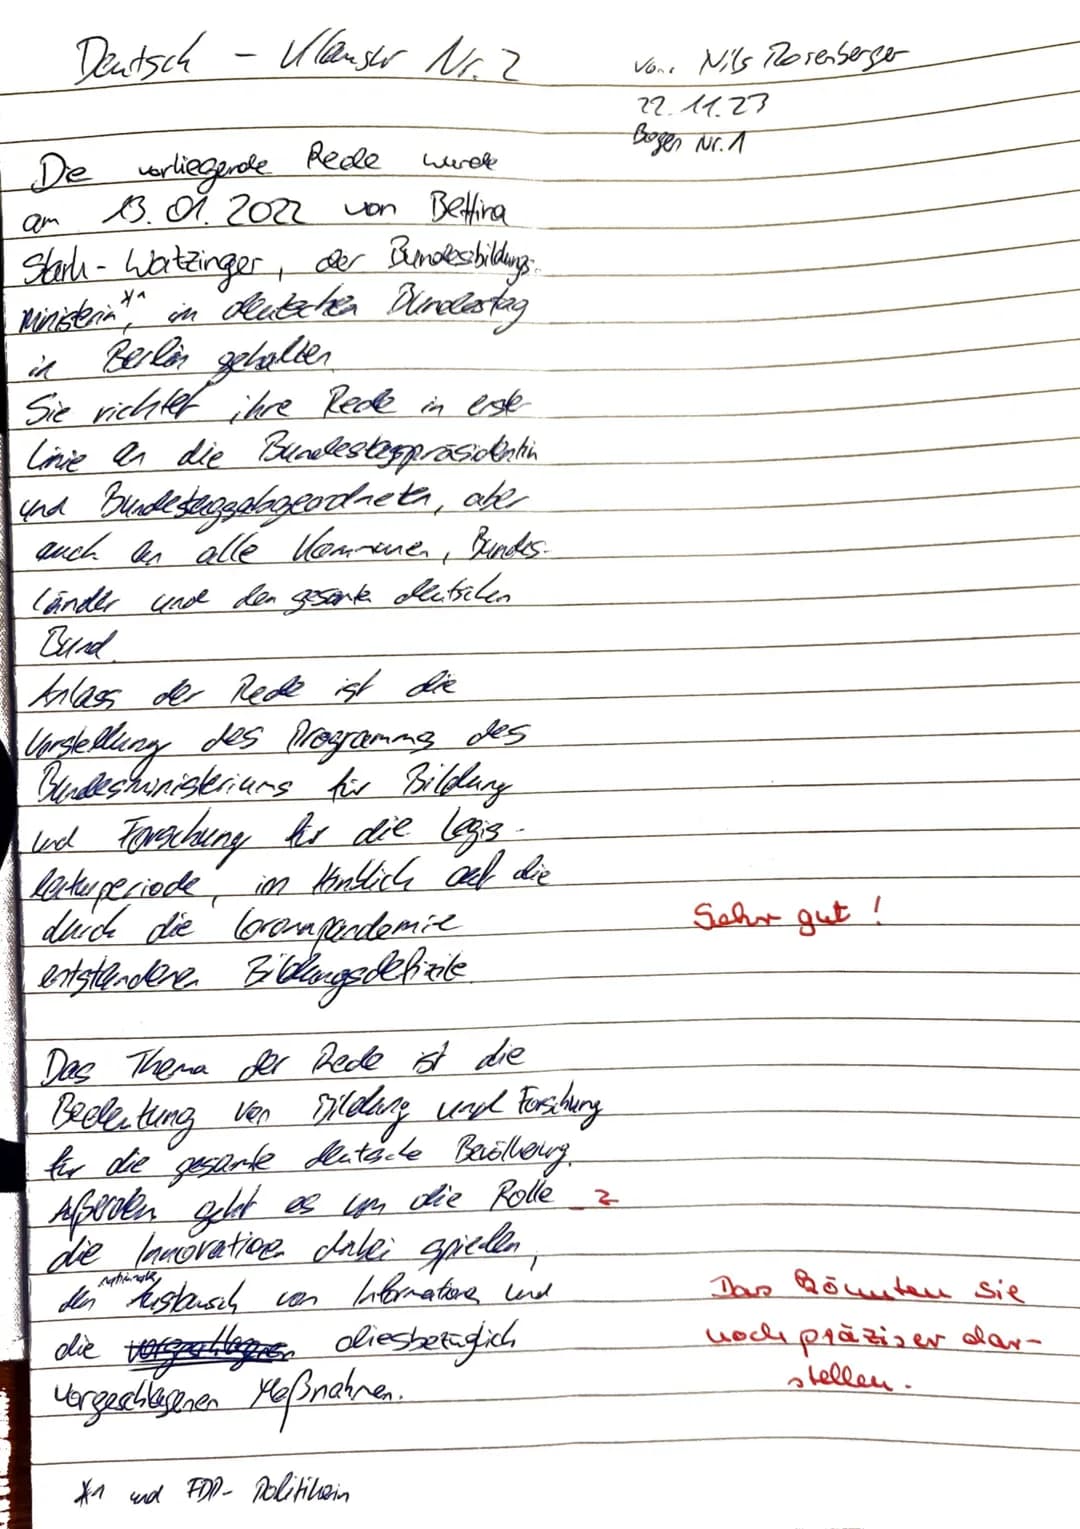 Deutsch - Klausur Nr. 2
von: Nils Rosenberger
22.11.23
Bogen Nr. 1
Die vorliegende Rede wurde
am 13.01.2022 von Bettina
Stark-Watzinger, der Bundesbildungs-
ministerin*1, im deutschen Bundestag
in Berlin gehalten.
Sie richtet ihre Rede in erster
Linie an die Bundestagspräsidentin
und Bundestagsabgeordneten, aber
auch an alle Kommunen, Bundes-
länder und den gesamten deutschen
Bund.
Anlass der Rede ist die
Vorstellung des Programms des
Bundesministeriums für Bildung
und Forschung für die Legis-
laturperiode, im Hinblick auf die
durch die Coronapandemie
entstandenen Bildungsdefizite.
Sehr gut!
Das Thema der Rede ist die
Bedeutung von Bildung und Forschung
für die gesamte deutsche Bevölkerung.
Außerdem geht es um die Rolle
die Innovationen dabei spielen,
den Austausch von Informationen und
die diesbezüglich
vorgeschlagenen Maßnahmen.
Das könnten Sie
noch präziser dar-
stellen.
*1 und FDP-Politikerin